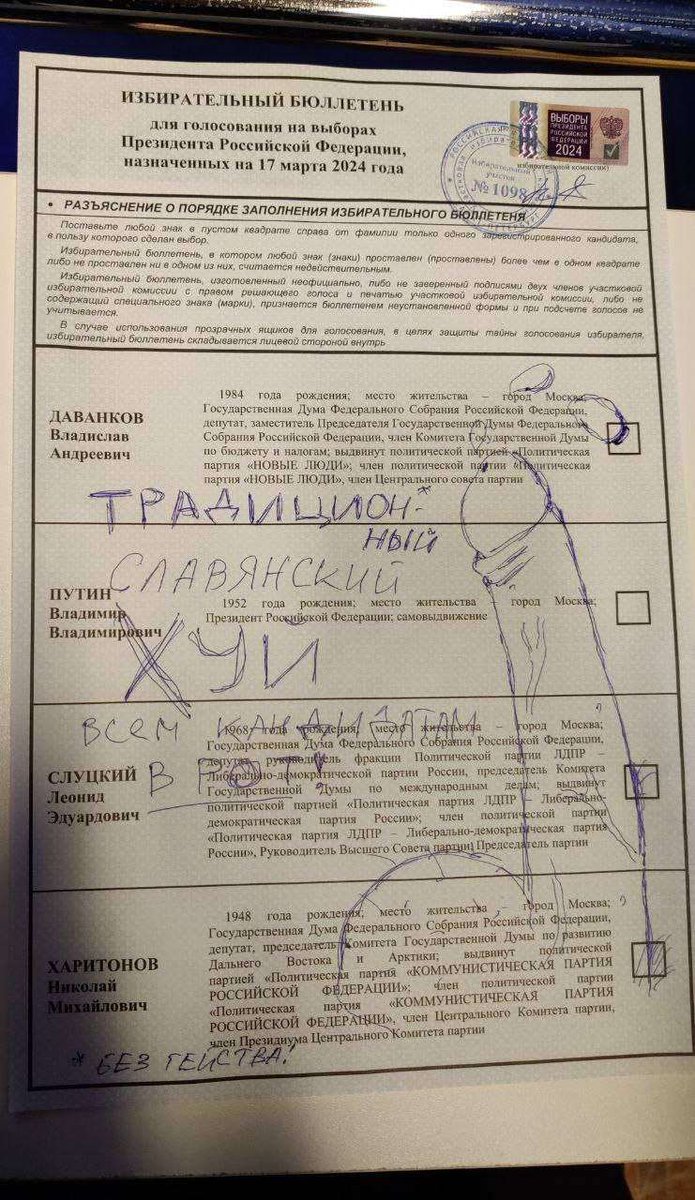 ИЗБИРАТЕЛЬНЫЙ БЮЛЛЕТЕНЬ
для голосования на выборах
Президента Российской Федерации,
назначенных на 17 марта 2024 года
ВЫБОРЫ
ПРЕЗИДЕНТА
РОССИЙСКОЙ
ФЕДЕРАЦИИ
2024
избирательной комиссии)
Избирательный
участок
№ 1098
• РАЗЪЯСНЕНИЕ О ПОРЯДКЕ ЗАПОЛНЕНИЯ ИЗБИРАТЕЛЬНОГО БЮЛЛЕТЕНЯ
Поставьте любой знак в пустом квадрате справа от фамилии только одного зарегистрированного кандидата,
в пользу которого сделан выбор.
Избирательный бюллетень, в котором любой знак (знаки) проставлен (проставлены) более чем в одном квадрате
либо не проставлен ни в одном из них, считается недействительным.
Избирательный бюллетень, изготовленный неофициально, либо не заверенный подписями двух членов участковой
избирательной комиссии с правом решающего голоса и печатью участковой избирательной комиссии, либо не
содержащий специального знака (марки), признается бюллетенем неустановленной формы и при подсчете голосов не
учитывается.
В случае использования прозрачных ящиков для голосования, в целях защиты тайны голосования избирателя,
избирательный бюллетень складывается лицевой стороной внутрь
ДАВАНКОВ
Владислав
Андреевич
1984 года рождения; место жительства – город Москва;
Государственная Дума Федерального Собрания Российской Федерации,
депутат, заместитель Председателя Государственной Думы Федерального
Собрания Российской Федерации, член Комитета Государственной Думы
по бюджету и налогам; выдвинут политической партией «Политическая
партия «НОВЫЕ ЛЮДИ»; член политической партии «Политическая
партия «НОВЫЕ ЛЮДИ», член Центрального совета партии
ТРАДИЦИОН-*
НЫЙ
СЛАВЯНСКИЙ
ПУТИН
Владимир
Владимирович
1952 года рождения; место жительства – город Москва;
Президент Российской Федерации; самовыдвижение
ХУЙ
ВСЕМ КАНДИДАТАМ
В РОТ!
СЛУЦКИЙ
Леонид
Эдуардович
1968 года рождения; место жительства – город Москва;
Государственная Дума Федерального Собрания Российской Федерации,
депутат, руководитель фракции Политической партии ЛДПР –
Либерально-демократической партии России, председатель Комитета
Государственной Думы по международным делам; выдвинут
политической партией «Политическая партия ЛДПР – Либерально-
демократическая партия России»; член политической партии
«Политическая партия ЛДПР – Либерально-демократическая партия
России», Руководитель Высшего Совета партии, Председатель партии
ХАРИТОНОВ
Николай
Михайлович
1948 года рождения; место жительства – город Москва;
Государственная Дума Федерального Собрания Российской Федерации,
депутат, председатель Комитета Государственной Думы по развитию
Дальнего Востока и Арктики; выдвинут политической
партией «Политическая партия «КОММУНИСТИЧЕСКАЯ ПАРТИЯ
РОССИЙСКОЙ ФЕДЕРАЦИИ»; член политической партии
«Политическая партия «КОММУНИСТИЧЕСКАЯ ПАРТИЯ
РОССИЙСКОЙ ФЕДЕРАЦИИ», член Центрального Комитета партии,
член Президиума Центрального Комитета партии
* БЕЗ ГЕЙСТВА!